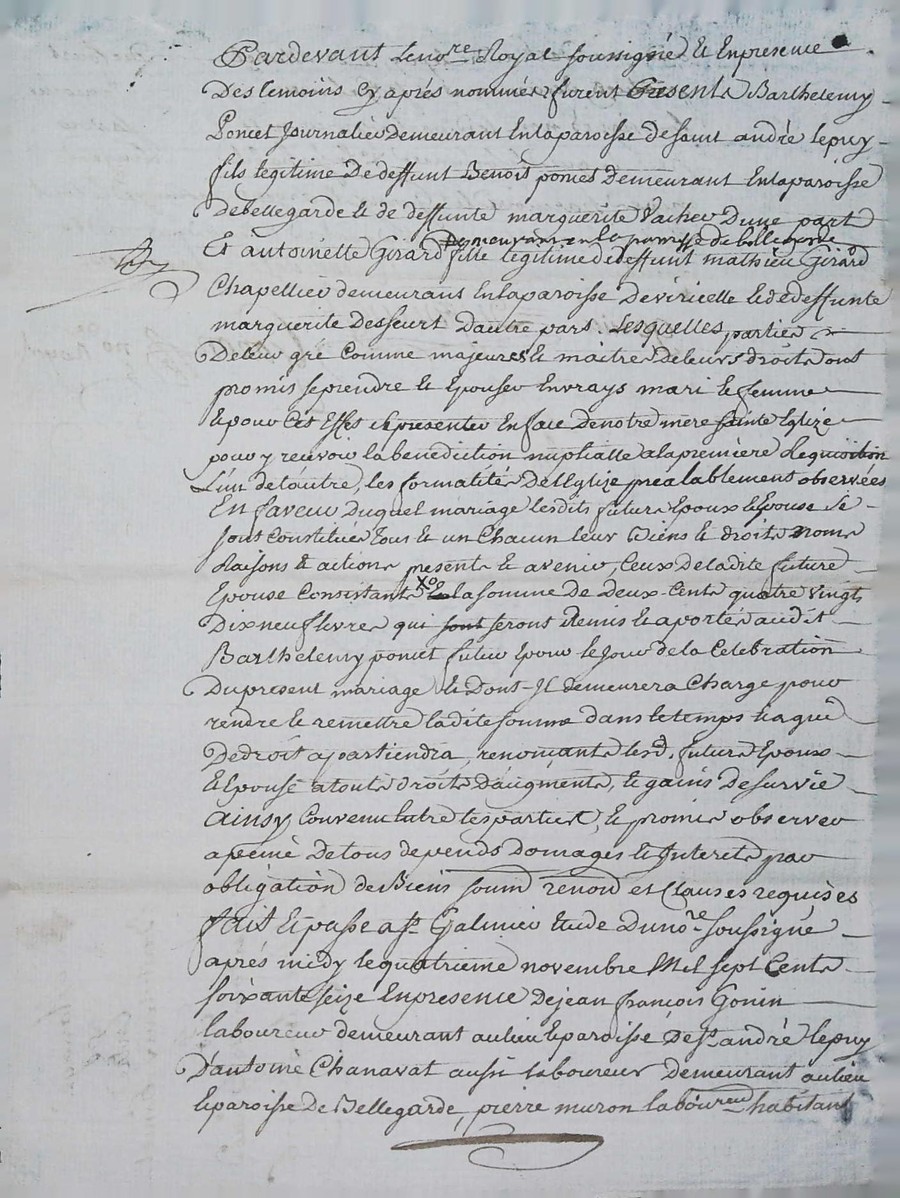 Pardevant Le no.re Royal soussigné et En presence
Des temoins Cy aprés nommés furent Presents Barthelemy
Poncet Journalier Demeurant En la paroisse de saint andré le puy
fils legitime De deffunt Benoît poncet Demeurant En la paroisse
De bellegarde et de deffunte marguerite Vacher D'une part
Demeurant en la paroisse de bellegarde
Et antoinette Girard fille legitime de deffunt mathieu Girard
Chapellier demeurant En la paroisse De viricelle et de deffunte
marguerite Desseurt D'autre part. Lesquelles parties
De leur gré Comme majeures et maitres De leurs droits ont
promis se prendre et Epouser En vrays mari et femme
Et pour Cet Effet se presenter En face De notre mere sainte Eglize
pour y recevoir la benediction nuptialle a la premiere Requisition
L'un de l'autre, les formalités De l'Eglize prealablement observées
En faveur Duquel mariage lesdits futurs Epoux et Epouse se
sont Constitués tous et un Chacun leur Biens et droits noms
Raisons et actions presents et avenir, Ceux De ladite future
Epouse Consistants En la somme De Deux-Cents quatre vingts
Dix neuf livres qui sont seront Remis et aportés audit
Barthelemy poncet futur Epoux le Jour de la Celebration
Du present mariage et Dont Il demeurera Chargé pour
rendre et remettre ladite somme dans le temps Et a qui
De droit apartiendra, renonçants lesd. futurs Epoux
Et Epouse a touts droits D'augments, et gains De survie
Ainsy Convenu Entre les parties, et promis observer
a peine De tous depends Domages et Interets par
obligation de Biens soumd renond et Clauses requises
fait Et passé a st. Galmier Etude Du no.re soussigné
aprés midy le quatrieme novembre Mil sept Cents
soixante seize En presence De jean françois Gonin
laboureur demeurant au lieu Et paroisse De st. andré le puy
D'antoine Chanavat aussi laboureur Demeurant au lieu
Et paroisse De Bellegarde, pierre muron laboureur habitant